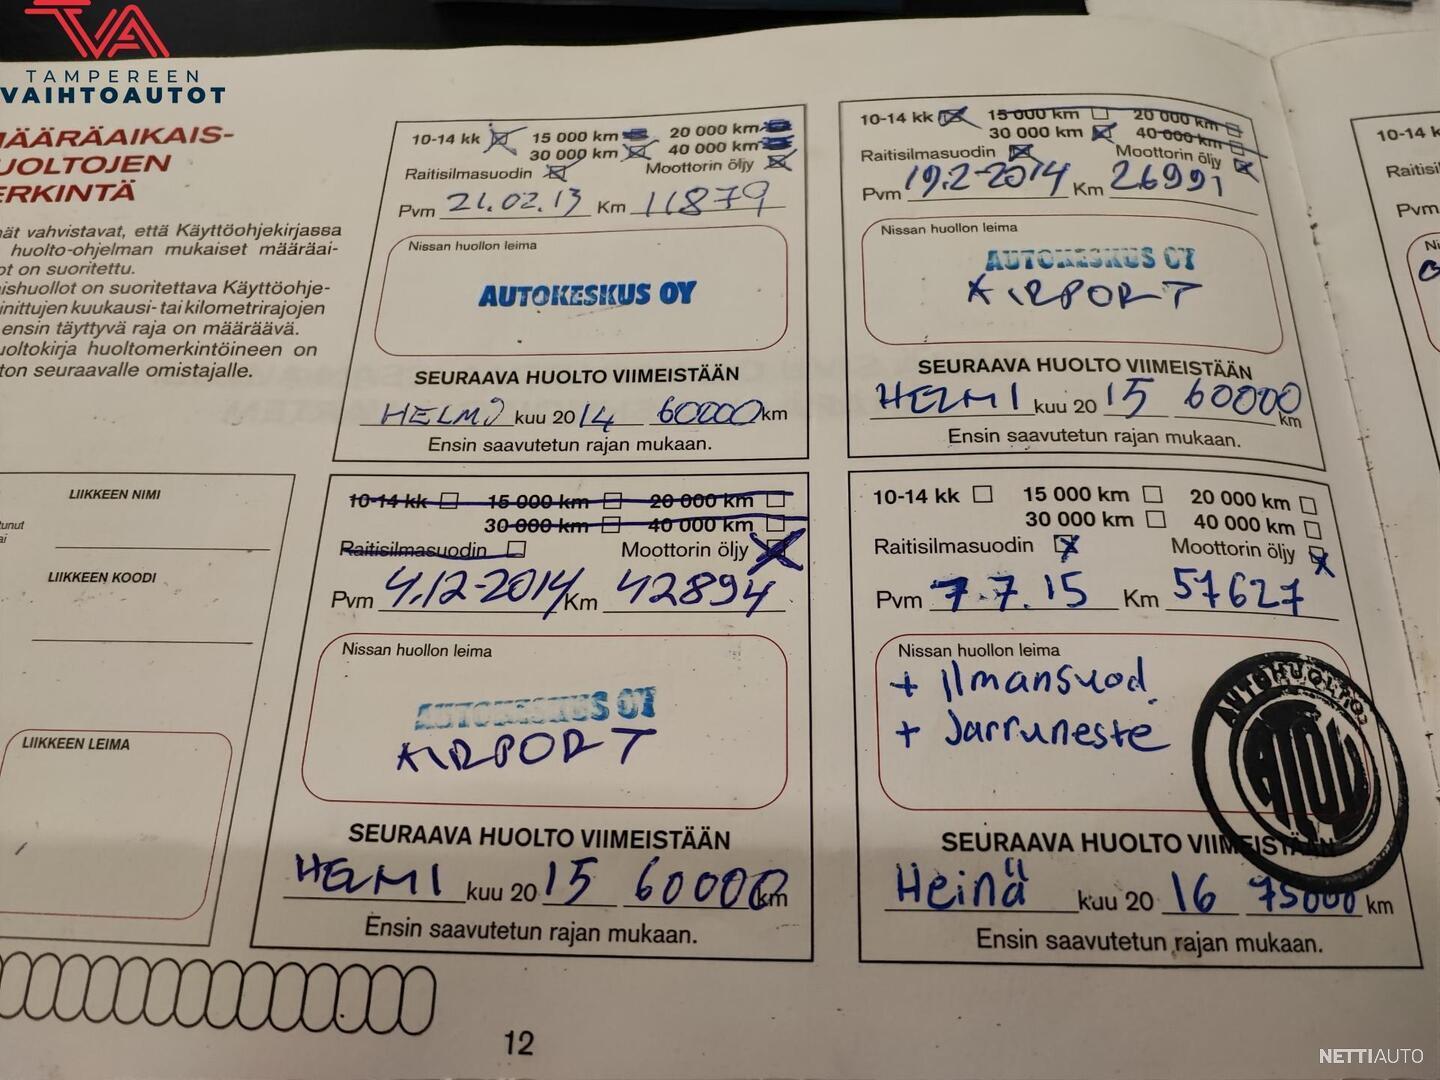 TAMPEREEN
VAIHTOAUTOT
MÄÄRÄAIKAIS-
HUOLTOJEN
MERKINTÄ
vahvistavat, että Käyttöohjekirjassa
huolto-ohjelman mukaiset määräai-
on suoritettu.
on suoritettava Käyttöohje-
kuukausi- tai kilometrirajojen
ensin täyttyvä raja on määräävä.
huoltomerkintöineen on
seuraavalle omistajalle.
LIIKKEEN NIMI
LIIKKEEN KOODI
LIIKKEEN LEIMA
10-14 kk 15 000 km 20 000 km
30 000 km 40 000 km
Raitisilmasuodin Moottorin öljy
Pvm 21.02.13 Km 11879
Nissan huollon leima
AUTOKESKUS OY
SEURAAVA HUOLTO VIIMEISTÄÄN
HELMI kuu 2014 60000 km
Ensin saavutetun rajan mukaan.
10-14 kk 15 000 km 20 000 km
30 000 km 40 000 km
Raitisilmasuodin Moottorin öljy
Pvm 19.2-2014 Km 26991
Nissan huollon leima
AUTOKESKUS OY
AIRPORT
SEURAAVA HUOLTO VIIMEISTÄÄN
HELMI kuu 2015 60000 km
Ensin saavutetun rajan mukaan.
10-14 kk 15 000 km 20 000 km
30 000 km 40 000 km
Raitisilmasuodin Moottorin öljy
Pvm 4.12-2014 Km 42894
Nissan huollon leima
AUTOKESKUS OY
AIRPORT
SEURAAVA HUOLTO VIIMEISTÄÄN
HELMI kuu 2015 60000 km
Ensin saavutetun rajan mukaan.
10-14 kk 15 000 km 20 000 km
30 000 km 40 000 km
Raitisilmasuodin Moottorin öljy
Pvm 7.7.15 Km 57627
Nissan huollon leima
+ Ilmansuod.
+ Jarruneste
AUTOHUOLTO
ATOY
SEURAAVA HUOLTO VIIMEISTÄÄN
Heinä kuu 2016 75000 km
Ensin saavutetun rajan mukaan.
10-14
Pvm
12
NETTIAUTO